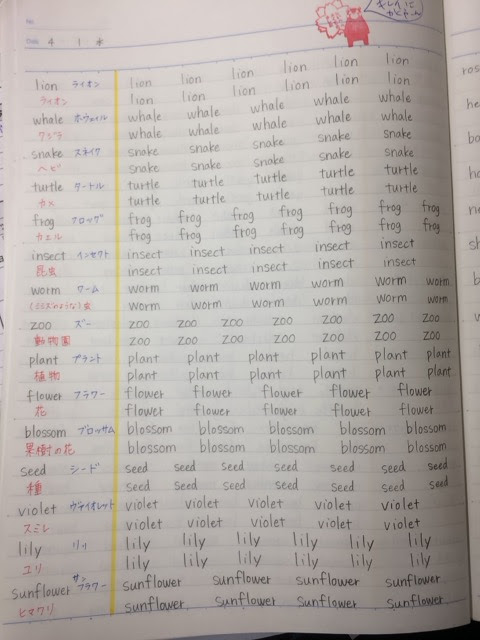 No.
Date 4 ・ 1 ・ 水
キレイに
lion ライオン lion lion lion lion lion lion
ライオン lion lion lion lion lion lion
whale ホウェイル whale whale whale whale whale
クジラ whale whale whale whale whale
snake スネイク snake snake snake snake snake
ヘビ snake snake snake snake snake
turtle タートル turtle turtle turtle turtle turtle
カメ turtle turtle turtle turtle turtle
frog フロッグ frog frog frog frog frog frog frog
カエル frog frog frog frog frog frog frog
insect インセクト insect insect insect insect insect
昆虫 insect insect insect insect insect
worm ワーム worm worm worm worm worm worm
(ミミズのような)虫 worm worm worm worm worm worm
zoo ズー zoo zoo zoo zoo zoo zoo zoo
動物園 zoo zoo zoo zoo zoo zoo zoo
plant プラント plant plant plant plant plant plant
植物 plant plant plant plant plant plant
flower フラワー flower flower flower flower flower
花 flower flower flower flower flower
blossom ブロッサム blossom blossom blossom blossom blossom
果樹の花 blossom blossom blossom blossom blossom
seed シード seed seed seed seed seed seed seed
種 seed seed seed seed seed seed seed
violet ヴァイオレット violet violet violet violet violet
スミレ violet violet violet violet violet
lily リリ lily lily lily lily lily lily
ユリ lily lily lily lily lily lily
sunflower サンフラワー sunflower sunflower sunflower sunflower
ヒマワリ sunflower sunflower sunflower sunflower